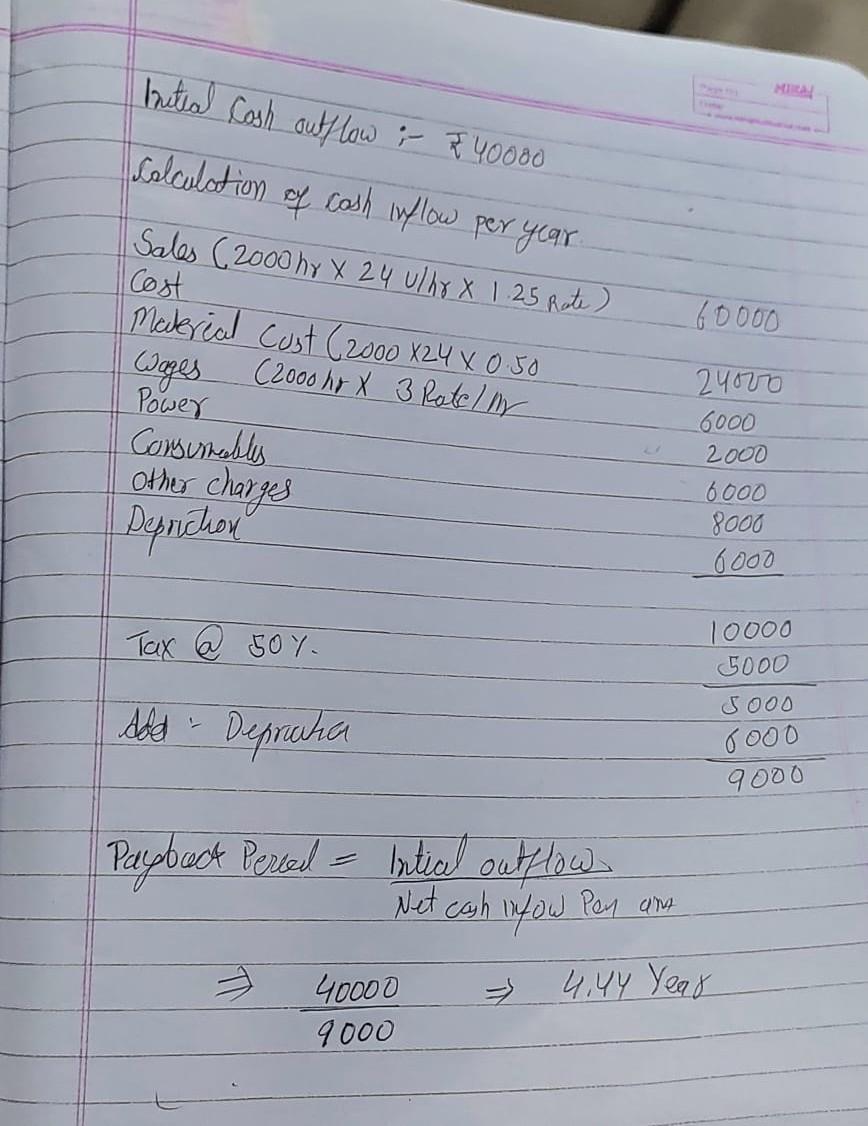 MIRAJ
Initial Cash outflow :- ₹40000
Calculation of cash inflow per year.
Sales (2000hr X 24 U/hr X 1.25 Rate) 60000
Cost
Material Cost (2000 X24 X 0.50 24000
Wages (2000hr X 3 Rate/hr 6000
Power 2000
Consumebly 6000
Other charges 8000
Depriction 6000
10000
Tax @ 50%. 5000
5000
Add :- Depriciation 6000
9000
Payback Period = Intial outflow
Net cash infow Per ann
⇒ 40000 ⇒ 4.44 Year
9000